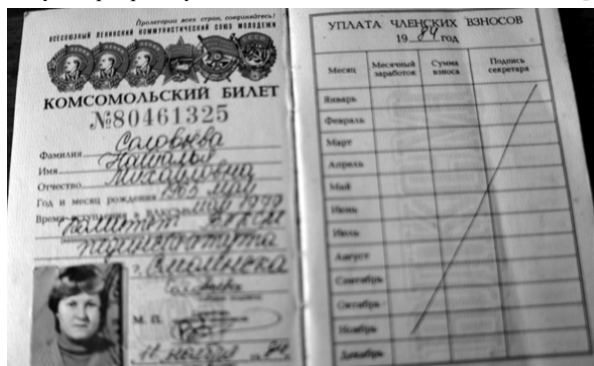 Пролетарии всех стран, соединяйтесь!
ВСЕСОЮЗНЫЙ ЛЕНИНСКИЙ КОММУНИСТИЧЕСКИЙ СОЮЗ МОЛОДЕЖИ
КОМСОМОЛЬСКИЙ БИЛЕТ
№80461325
Фамилия Соловьева
Имя Наталья
Отчество Михайловна
Год и месяц рождения 1965 май
Время вступления в май 1979
Комитет ВЛКСМ
пединститута
г. Смоленска
М. П.
11 ноября 1984
УПЛАТА ЧЛЕНСКИХ ВЗНОСОВ
1984 год
Месяц Месячный заработок Сумма взноса Подпись секретаря
Январь
Февраль
Март
Апрель
Май
Июнь
Июль
Август
Сентябрь
Октябрь
Ноябрь
Декабрь